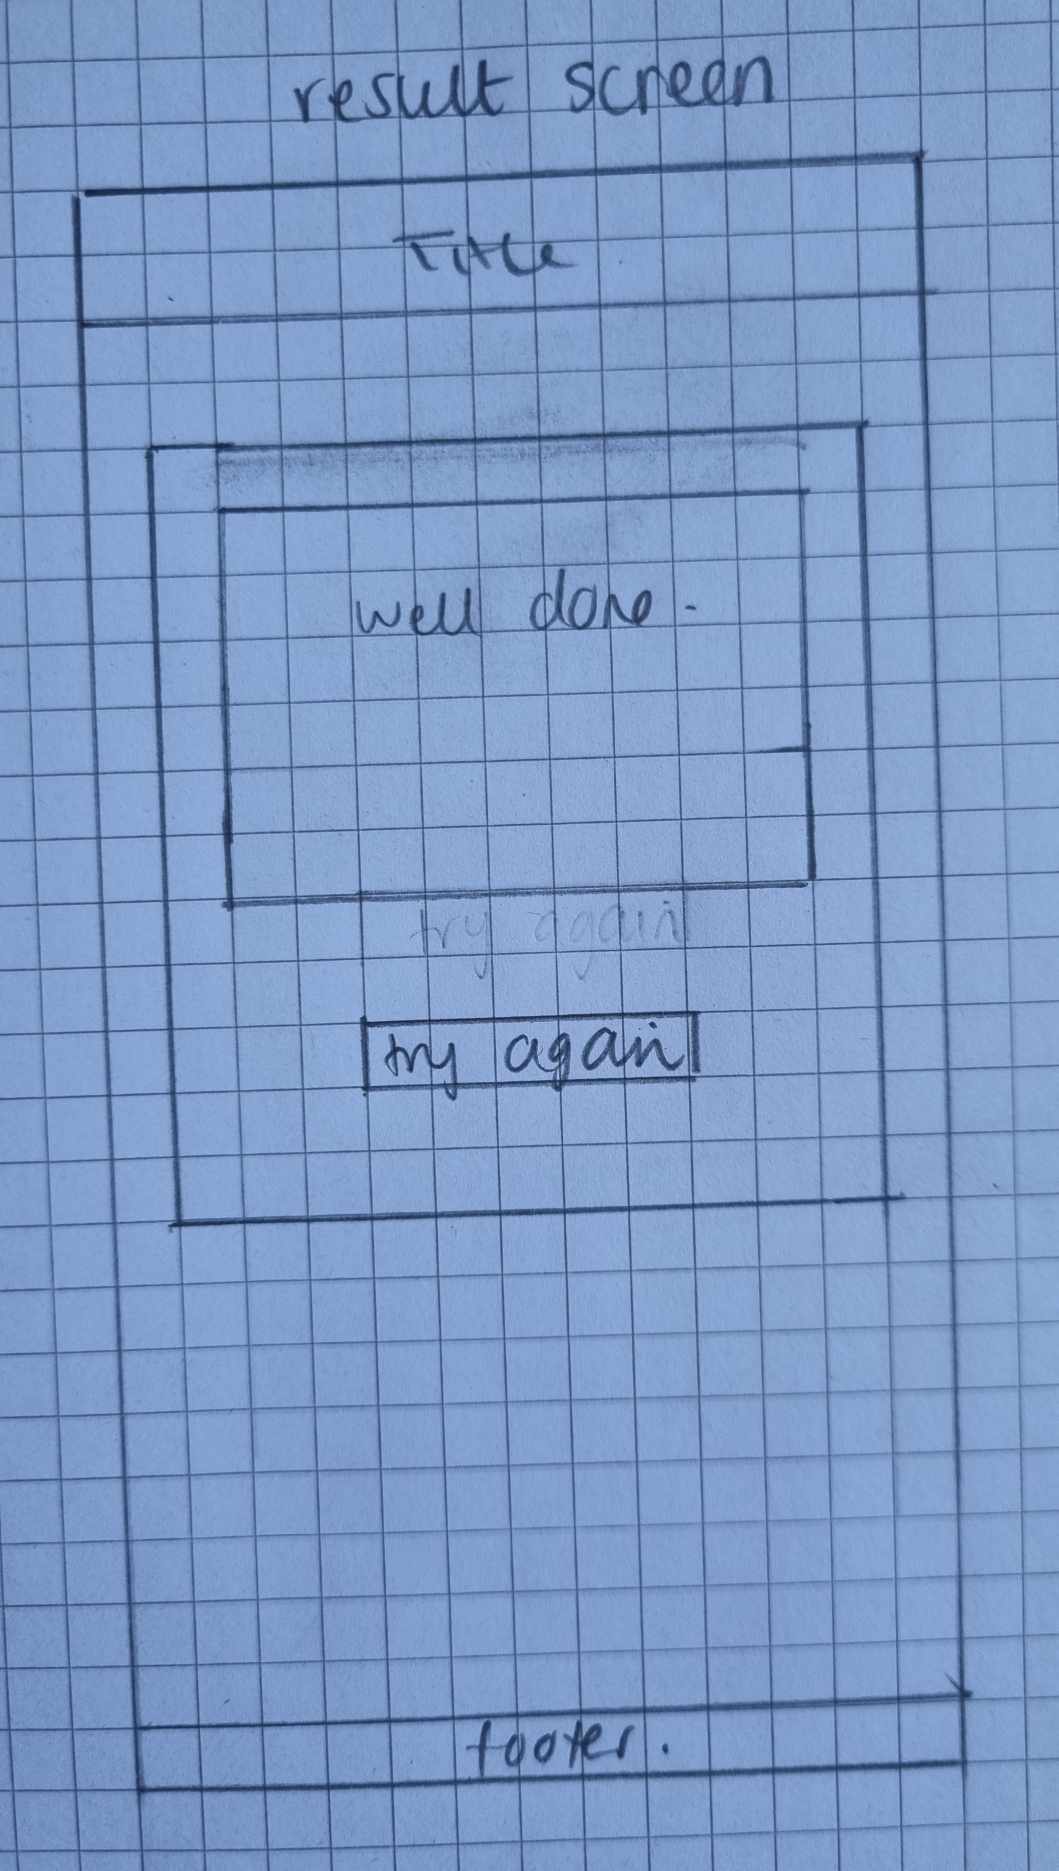 result screen
Title
well done.
try again
try again
footer.